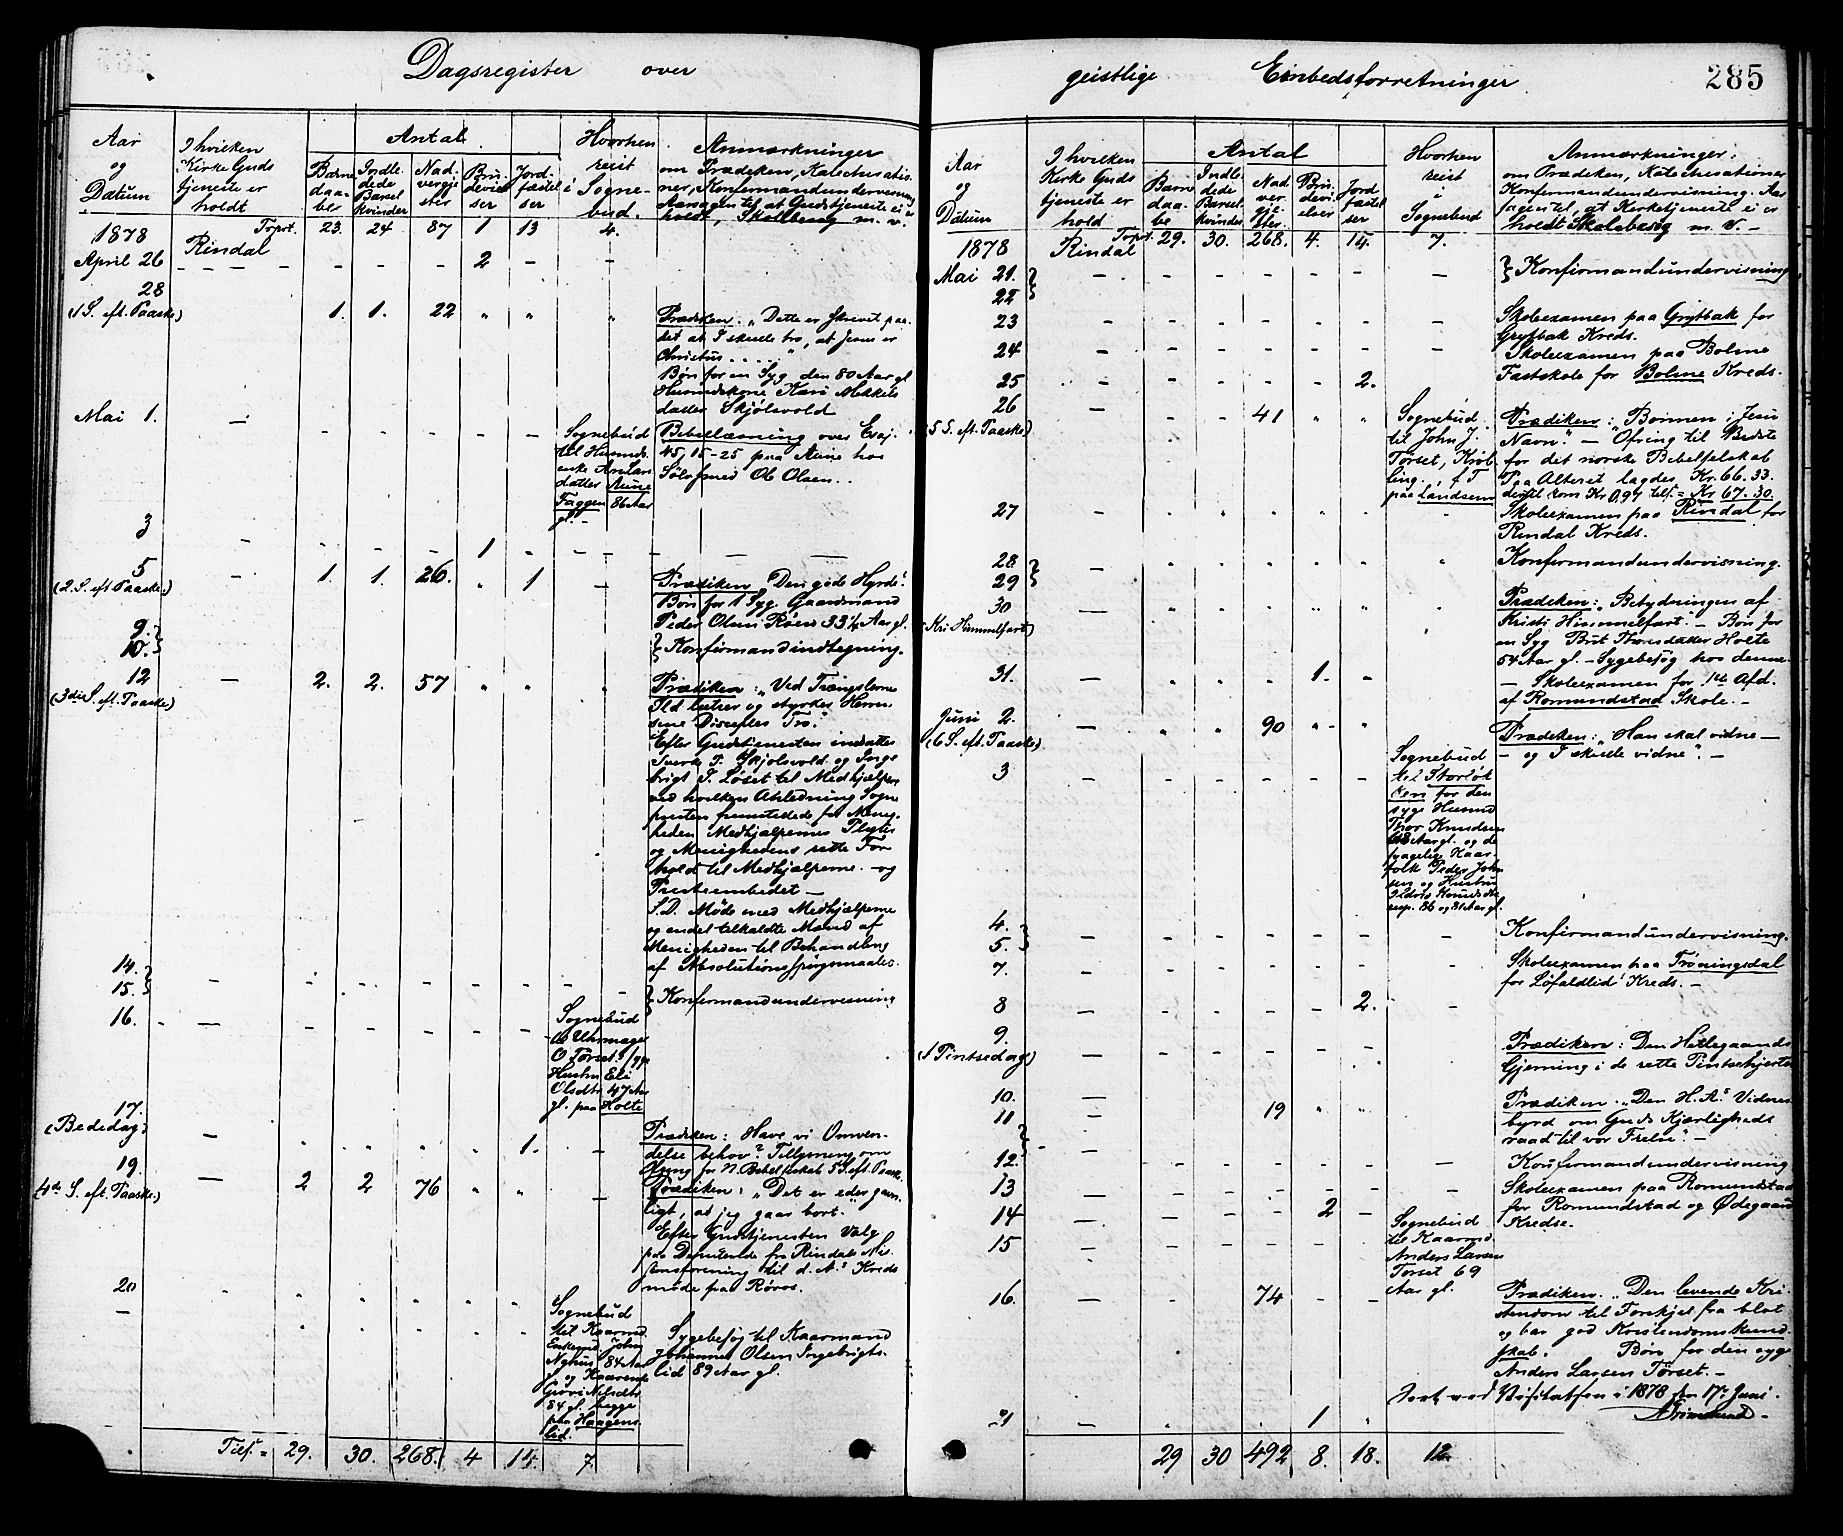 Dagsregister over geistlige Embedsforretninger
285
Aar og Datum
I hvilken Kirke Gudstjeneste er holdt
Antal
Barnedaaber
Indledede Barselkvinder
Nadvergjester
Brudevielser
Jordfæstelser
Hvorhen reist i Sognebud.
Anmærkninger
om Prædiken, Katechisationer, Konfirmandundervisning
Aarsagen til, at Gudstjeneste ei er
holdt, Skolebesøg m. v.
1878 Rindal Tspt. 23. 24 87 1 13 4.
April 26 - - - - - 2 - -
28
(1 S. eft. Paaske) 1. 1. 22 " " "
Prædiken. "Dette er skrevet paa
det at I skulde tro, at Jesus er
Christus . . . . ."
Bøn for en Syg den 80 Aar gl
Huusmdskone Kari Mikkels
datter Skjølsvold
Mai 1.
Sognebud
til Huusmds
enke
datter Aune
Faggen 86 Aar
gl. -
Bibellæsning over Esaj.
45, 15-25 paa Aune hos
Sølvsmed Ob Olsen. .
3 - - - - 1 - - -
5
(2. S. eft Paaske.) - 1. 1. 26. " 1 -
Prædiken "Den gode Hyrde".
Bøn for 1 Syg Gaardmand
Peder Olsen Røen 33 1/4 Aar gl.
9.
10.
} Konfirmandindtegning.
12 - 2. 2. 57 " " "
(3die S. eft. Paaske.)
Prædiken: "Ved Trængslerne
Ild lutrer og styrkes Herrens
sine Disciples Tro."
Efter Gudstjenesten indsattes
Sivert T. Skjølsvold og Inge
brigt S. Løset til Medhjælpere
ved hvilken Anledning Sogne
præsten fremstillede for Menig-
heden Medhjælpernes Pligter
og Menighedens rette For
hold til Medhjælperne - og
Præsteembedet -
S.D. Møde med Medhjælperne
og endel tilkaldte Mænd af
Menigheden til Behandling
af Absolutionsspørgsmaalet.
14.
15.
} Konfirmandundervisning
16.
Sognebud
Uhrmager
O Tørset's syge
Hustru Eli
Olsdtr 47 Aar
gl. paa Holte
17.
(Bededag) 1.
Prædiken: Have vi Omven-
delse behov? Tillysning om
Ofring for N. Bibelselskab 5 S. eft. Paaske.
19.
(4de S. eft. Paaske.) - 2 2 76 " " -
Prædiken: "Det er eder gavn-
ligt, at jeg gaar bort."
Efter Gudstjenesten Valg
paa Deputerede fra Rindals Mis-
sionsforening til d. A.s Kreds
møde paa Røros.
20
Sognebud
til Kaarmd
Enkemd John
Nyhus 84 Aar
gl og Kaarenke
Guro Nilsdtr
84 gl. begge
paa Haagens
lid.
Sygebesøg til Kaarmand
Johannes Olsen Ingebrigts-
lid 89 Aar gl.
Tils. = 29. 30. 268. 4 14. 7.
Aar og Datum
I hvilken Kirke Gudstjeneste er hold
Antal
Barnedaabe
Indledede Barselkvinder
Nadvergjester
Brudevielser
Jordfæstelser
Hvorhen reist i Sognebud
Anmærkninger:
om Prædiken, Katechisationer
Konfirmandundervisning. Aar
sagen til, at Kirketjeneste ei er
holdt Skolebesøg m. v. -
1878 Rindal Tspt. 29. 30. 268. 4. 14. 7.
Mai 21.
22
} Konfirmandundervisning
23
Skoleexamen paa Grytbak for
Grytbak Kreds.
24
Skoleexamen paa Bolme
Fastskole for Bolme Kreds.
25 2.
26 - - - 41 " "
(5 S. eft. Paaske)
Sognebud
til John J.
Tørset, Krøb
ling. f T
paa Landsem
Prædiken: "Bønnen i Jesu
Navn." - Ofring til Bedste
for det norske Bibelselskab
Paa Alteret lagdes Kr. 66.33.
dertil kom Kr 0.97 tils. = Kr 67.30.
27
Skoleexamen paa Rindal for
Rindal Kreds.
28
29
Konfirmandundervisning.
30
(Kri Himmelfart)
Prædiken: "Betydningen af
Kristi Himmelfart. - Bøn for
en Syg Brit Thoresdatter Holte
54 Aar gl. - Sygebesøg hos denne
31. 1.
- Skoleexamen for 1ste Afd.
af Romundstad Skole. -
Juni 2. 90
(6 S. eft. Paaske)
Prædiken: "Han skal vidne -
- og I skulle vidne". -
3
Sognebud
til Storløk
ken for den
syge Huusmd
Thor Knudsen
Aar gl. og de
svagelige Kaar-
folk Peder John
sen og Hustru
Knudsdtr
resp. 86 og 81 Aar gl.
4.
5.
Konfirmandundervisning.
7.
Skoleexamen paa Trøningsdal
for Løfaldlid Kreds. -
8 2.
9.
(1 Pintsedag)
Prædiken: Den Helligaands
Gjerning i de rette Pintsehjerter
10. 19
Prædiken. "Den H.A.s Vidnes
byrd om Guds Kjærligheds
raad til vor Frelse". -
11
12.
Konfirmandundervisning
13
Skoleexamen paa Romundstad
for Romundstad og Ødegaard
Kredse.
14 2
15
Sognebud
til Kaarmd.
Anders Larsen
Tørset 69
Aar gl.
16. 74
Prædiken. "Den levende Kri-
stendom til Forskjel fra blot
og bar god Kristendomskund-
skab. Bøn for den syge
Anders Larsen Tørset. -
ved Visitatsen i 1878 den 17de Juni.
Grimelund -
21 1
29 30 492 8. 18. 12.